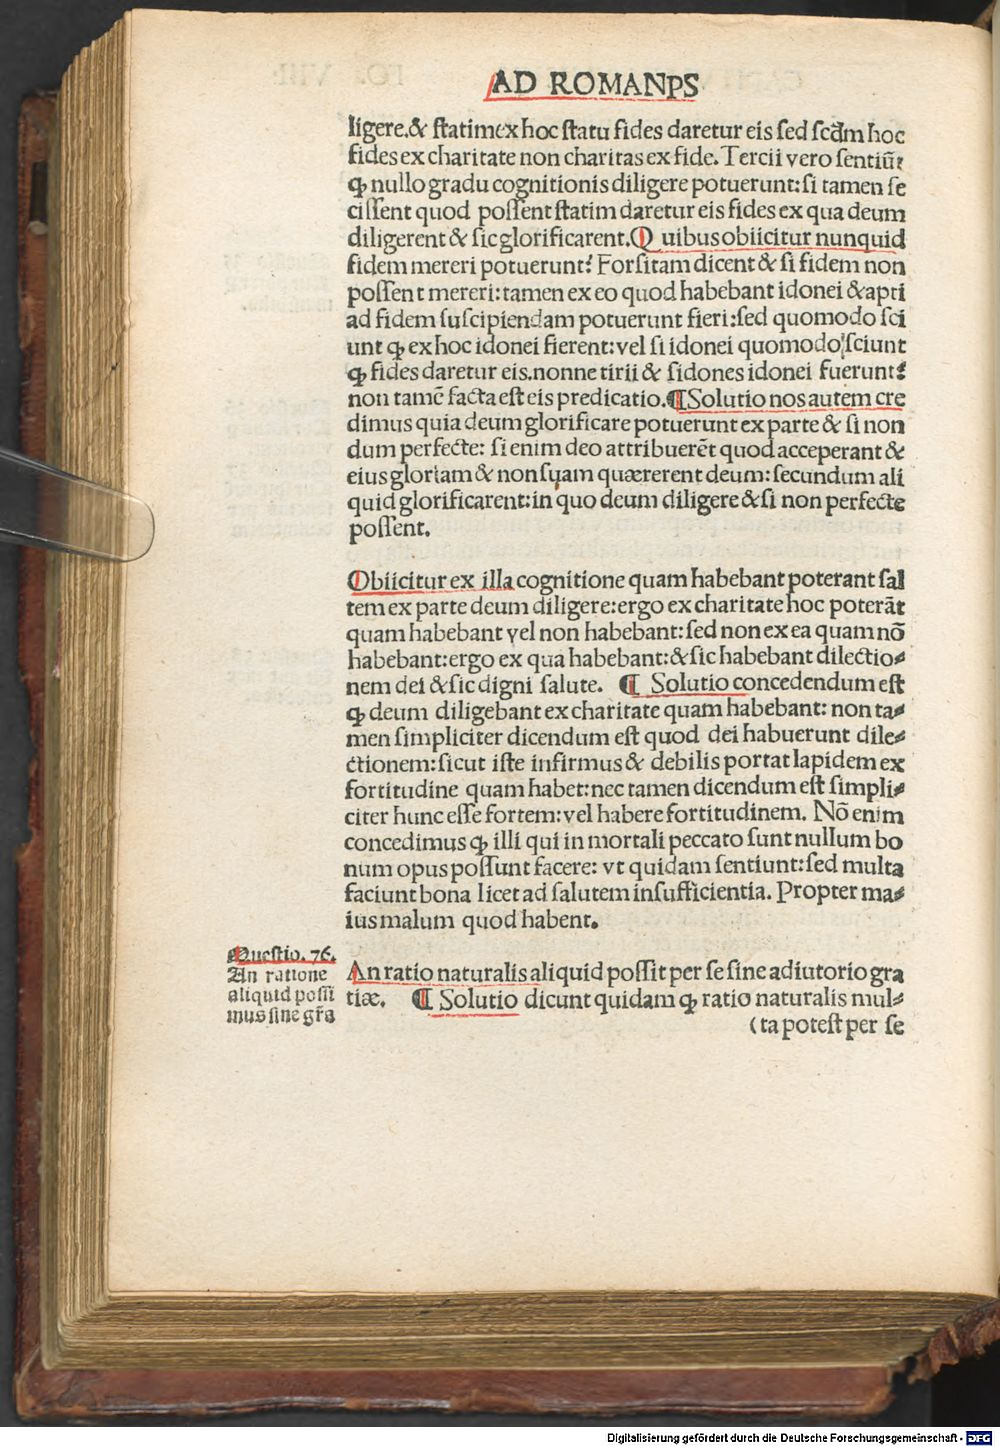 AD ROMANPS
ligere.& ſtatim ex hoc ſtatu fides daretur eis ſed ſcd̄m hoc
fides ex charitate non charitas ex fide. Tercii vero ſentiūt
ꝙ nullo gradu cognitionis diligere potuerunt: ſi tamen fe
ciſſent quod poſſent ſtatim daretur eis fides ex qua deum
diligerent & ſic glorificarent. Quibus obiicitur nunquid
fidem mereri potuerunt? Forſitam dicent & ſi fidem non
poſſent mereri: tamen ex eo quod habebant idonei & apti
ad fidem ſuſcipiendam potuerunt fieri: ſed quomodo ſci
unt ꝙ ex hoc idonei fierent: vel ſi idonei quomodo ſciunt
ꝙ fides daretur eis. nonne tirii & ſidones idonei fuerunt?
non tamē facta eſt eis predicatio. ¶ Solutio nos autem cre
dimus quia deum glorificare potuerunt ex parte & ſi non
dum perfecte: ſi enim deo attribuerēt quod acceperant &
eius gloriam & non ſuam quærerent deum: ſecundum ali
quid glorificarent: in quo deum diligere & ſi non perfecte
poſſent.
Obiicitur ex illa cognitione quam habebant poterant ſal
tem ex parte deum diligere: ergo ex charitate hoc poterāt
quam habebant vel non habebant: ſed non ex ea quam nō
habebant: ergo ex qua habebant: & ſic habebant dilectio⸗
nem dei & ſic digni ſalute. ¶ Solutio concedendum eſt
ꝙ deum diligebant ex charitate quam habebant: non ta⸗
men ſimpliciter dicendum eſt quod dei habuerunt dile⸗
ctionem: ſicut iſte infirmus & debilis portat lapidem ex
fortitudine quam habet: nec tamen dicendum eſt ſimpli⸗
citer hunc eſſe fortem: vel habere fortitudinem. Nō enim
concedimus ꝙ illi qui in mortali peccato ſunt nullum bo
num opus poſſunt facere: vt quidam ſentiunt: ſed multa
faciunt bona licet ad ſalutem inſufficientia. Propter ma⸗
ius malum quod habent.
Queſtio. 76.
An ratione
aliquid poſſi
mus ſine gr̄a
An ratio naturalis aliquid poſſit per ſe ſine adiutorio gra
tiæ. ¶ Solutio dicunt quidam ꝙ ratio naturalis mul⸗
(ta poteſt per ſe
Digitalisierung gefördert durch die Deutsche Forschungsgemeinschaft - DFG